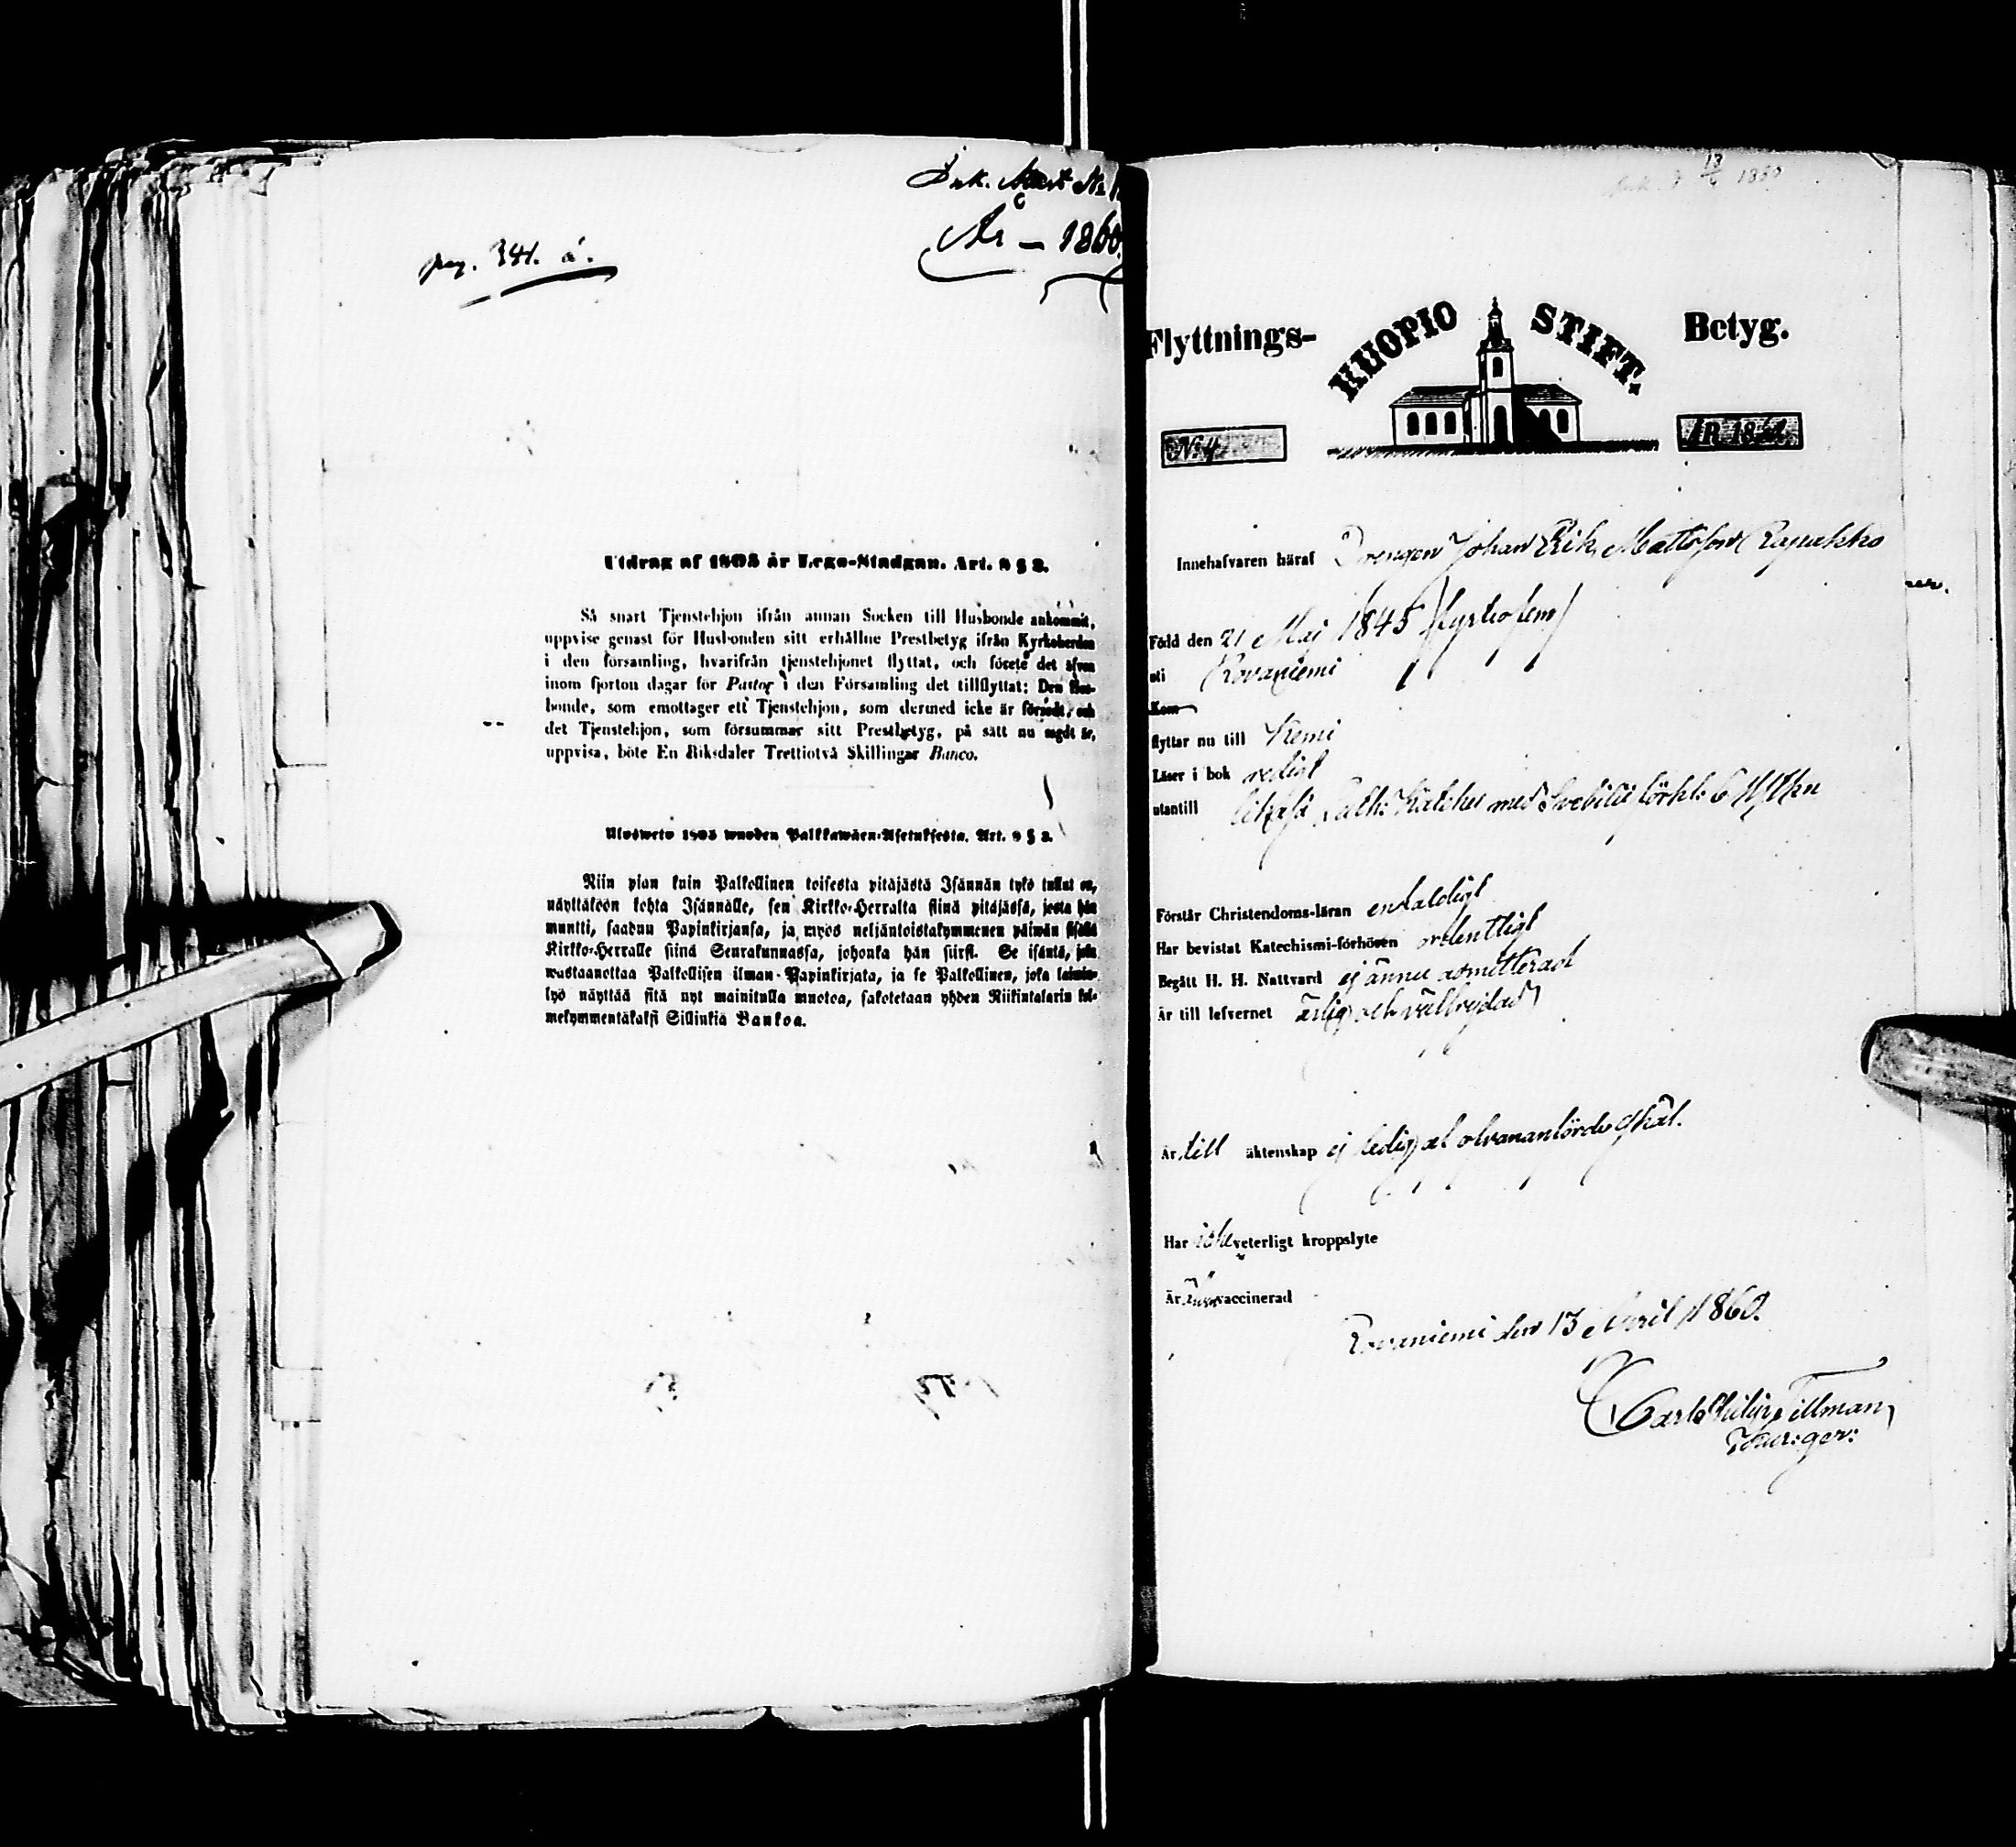 Ink. Attest No
År – 1860.
pag. 341. a.
Utdrag af 1805 år Lego-Stadgan. Art. 9 § 2.
Så snart Tjenstehjon ifrån annan Socken till Husbonde ankommit,
uppvise genast för Husbonden sitt erhållne Prestbetyg ifrån Kyrkoherden
i den församling, hvarifrån tjenstehjonet flyttat, och förete det äfven
inom fjorton dagar för Pastor i den Församling det tillflyttat; Den Hus-
bonde, som emottager ett Tjenstehjon, som dermed icke är försedt, och
det Tjenstehjon, som försummar sitt Prestbetyg, på sätt nu sagdt är,
uppvisa, böte En Riksdaler Trettiotvå Skillingar Banco.
Ulosweto 1805 wuoden Palkkawäen-Asetuksesta. Art. 9 § 2.
Niin pian kuin Palkollinen toisesta pitäjästä Isännän tykö tullut on,
näyttäköön kohta Isännälle, sen Kirkko-Herralta siinä pitäjässä, josta hän
muutti, saadun Papinkirjansa, ja myös neljäntoistakymmenen päiwän sisällä
Kirkko-Herralle siinä Seurakunnassa, johonka hän siirsi. Se isäntä, joka
wastaanottaa Palkollisen ilman Papinkirjata, ja se Palkollinen, joka laimin-
lyö näyttää sitä nyt mainitulla muotoa, sakotetaan yhden Riikintalarin kol-
mekymmentäkaksi Sillinkiä Bankoa.
13 1860
Flyttnings- KUOPIO STIFT. Betyg.
No 4 ÅR 18
Innehafvaren häraf Drengen Johan Erik Mattsson Rapakko
Född den 21 Maj 1845
uti Rovaniemi
Kom
flyttar nu till Kemi
Läser i bok redigt
utantill Luth: Kateches med Svebilii förkl:
Förstår Christendoms-läran enfaldigt
Har bevistat Katechismi-förhören ordentligt
Begått H. H. Nattvard ej ännu admitterad
Är till lefvernet ärlig och välfrejdad
Är till äktenskap ej ledig af ofvananförde skäl.
Har icke veterligt kroppslyte
Är vaccinerad
Rovaniemi den 13 April 1860.
Carl Tillman